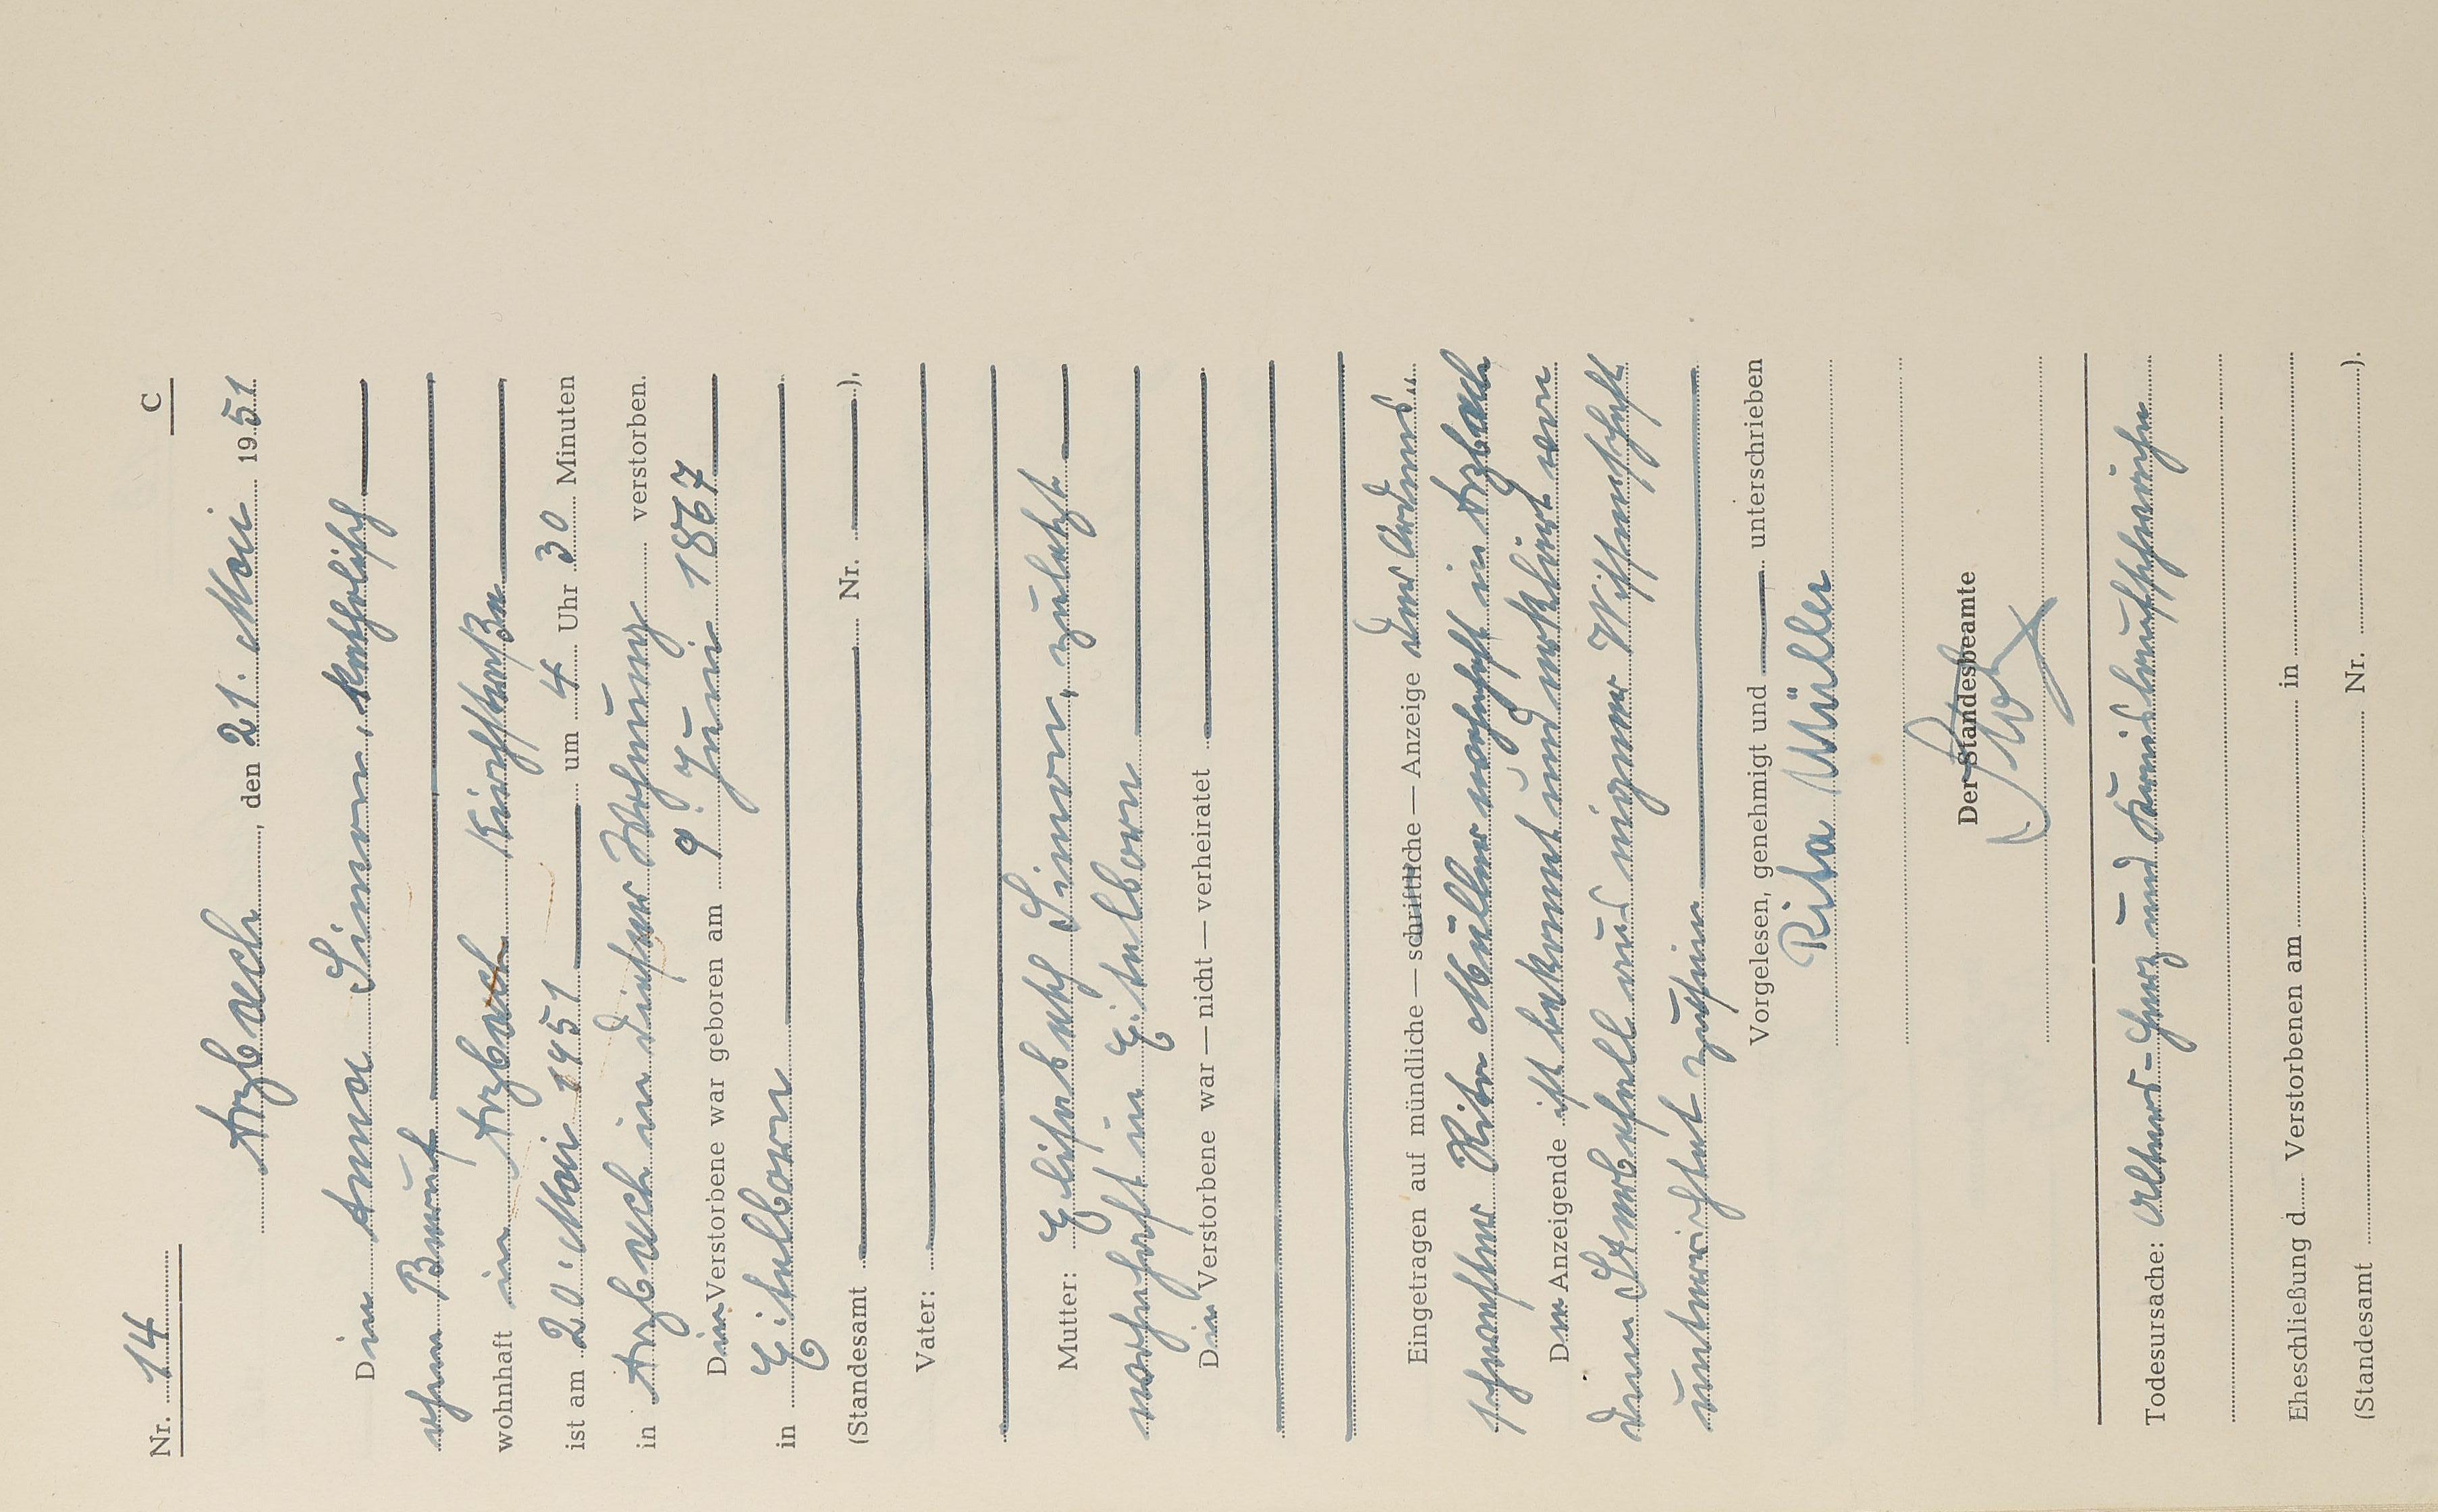 Nr. 14
C
Arzbach, den 21. Mai 1951
Die Anna Simon, katholisch
ohne Beruf
wohnhaft in Arzbach Kirchstraße
ist am 20. Mai 1951 um 4 Uhr 30 Minuten
in Arzbach in dieser Wohnung verstorben.
Die Verstorbene war geboren am 9. Juni 1867
in Eitelborn
(Standesamt Nr. ),
Vater:
Mutter: Elisabeth Simon, zuletzt
wohnhaft in Eitelborn
Die Verstorbene war — nicht — verheiratet
Eingetragen auf mündliche — schriftliche — Anzeige der Ordens"
schwester Rita Müller wohnhaft in Arzbach
Der Anzeigende ist bekannt und erklärt von
dem Sterbefall aus eigener Wissenschaft
unterrichtet zu sein
Vorgelesen, genehmigt und unterschrieben
Rita Müller
Der Standesbeamte
Todesursache: Alters-Herz und Kreislaufschwäche
Eheschließung d Verstorbenen am in
(Standesamt Nr. ).